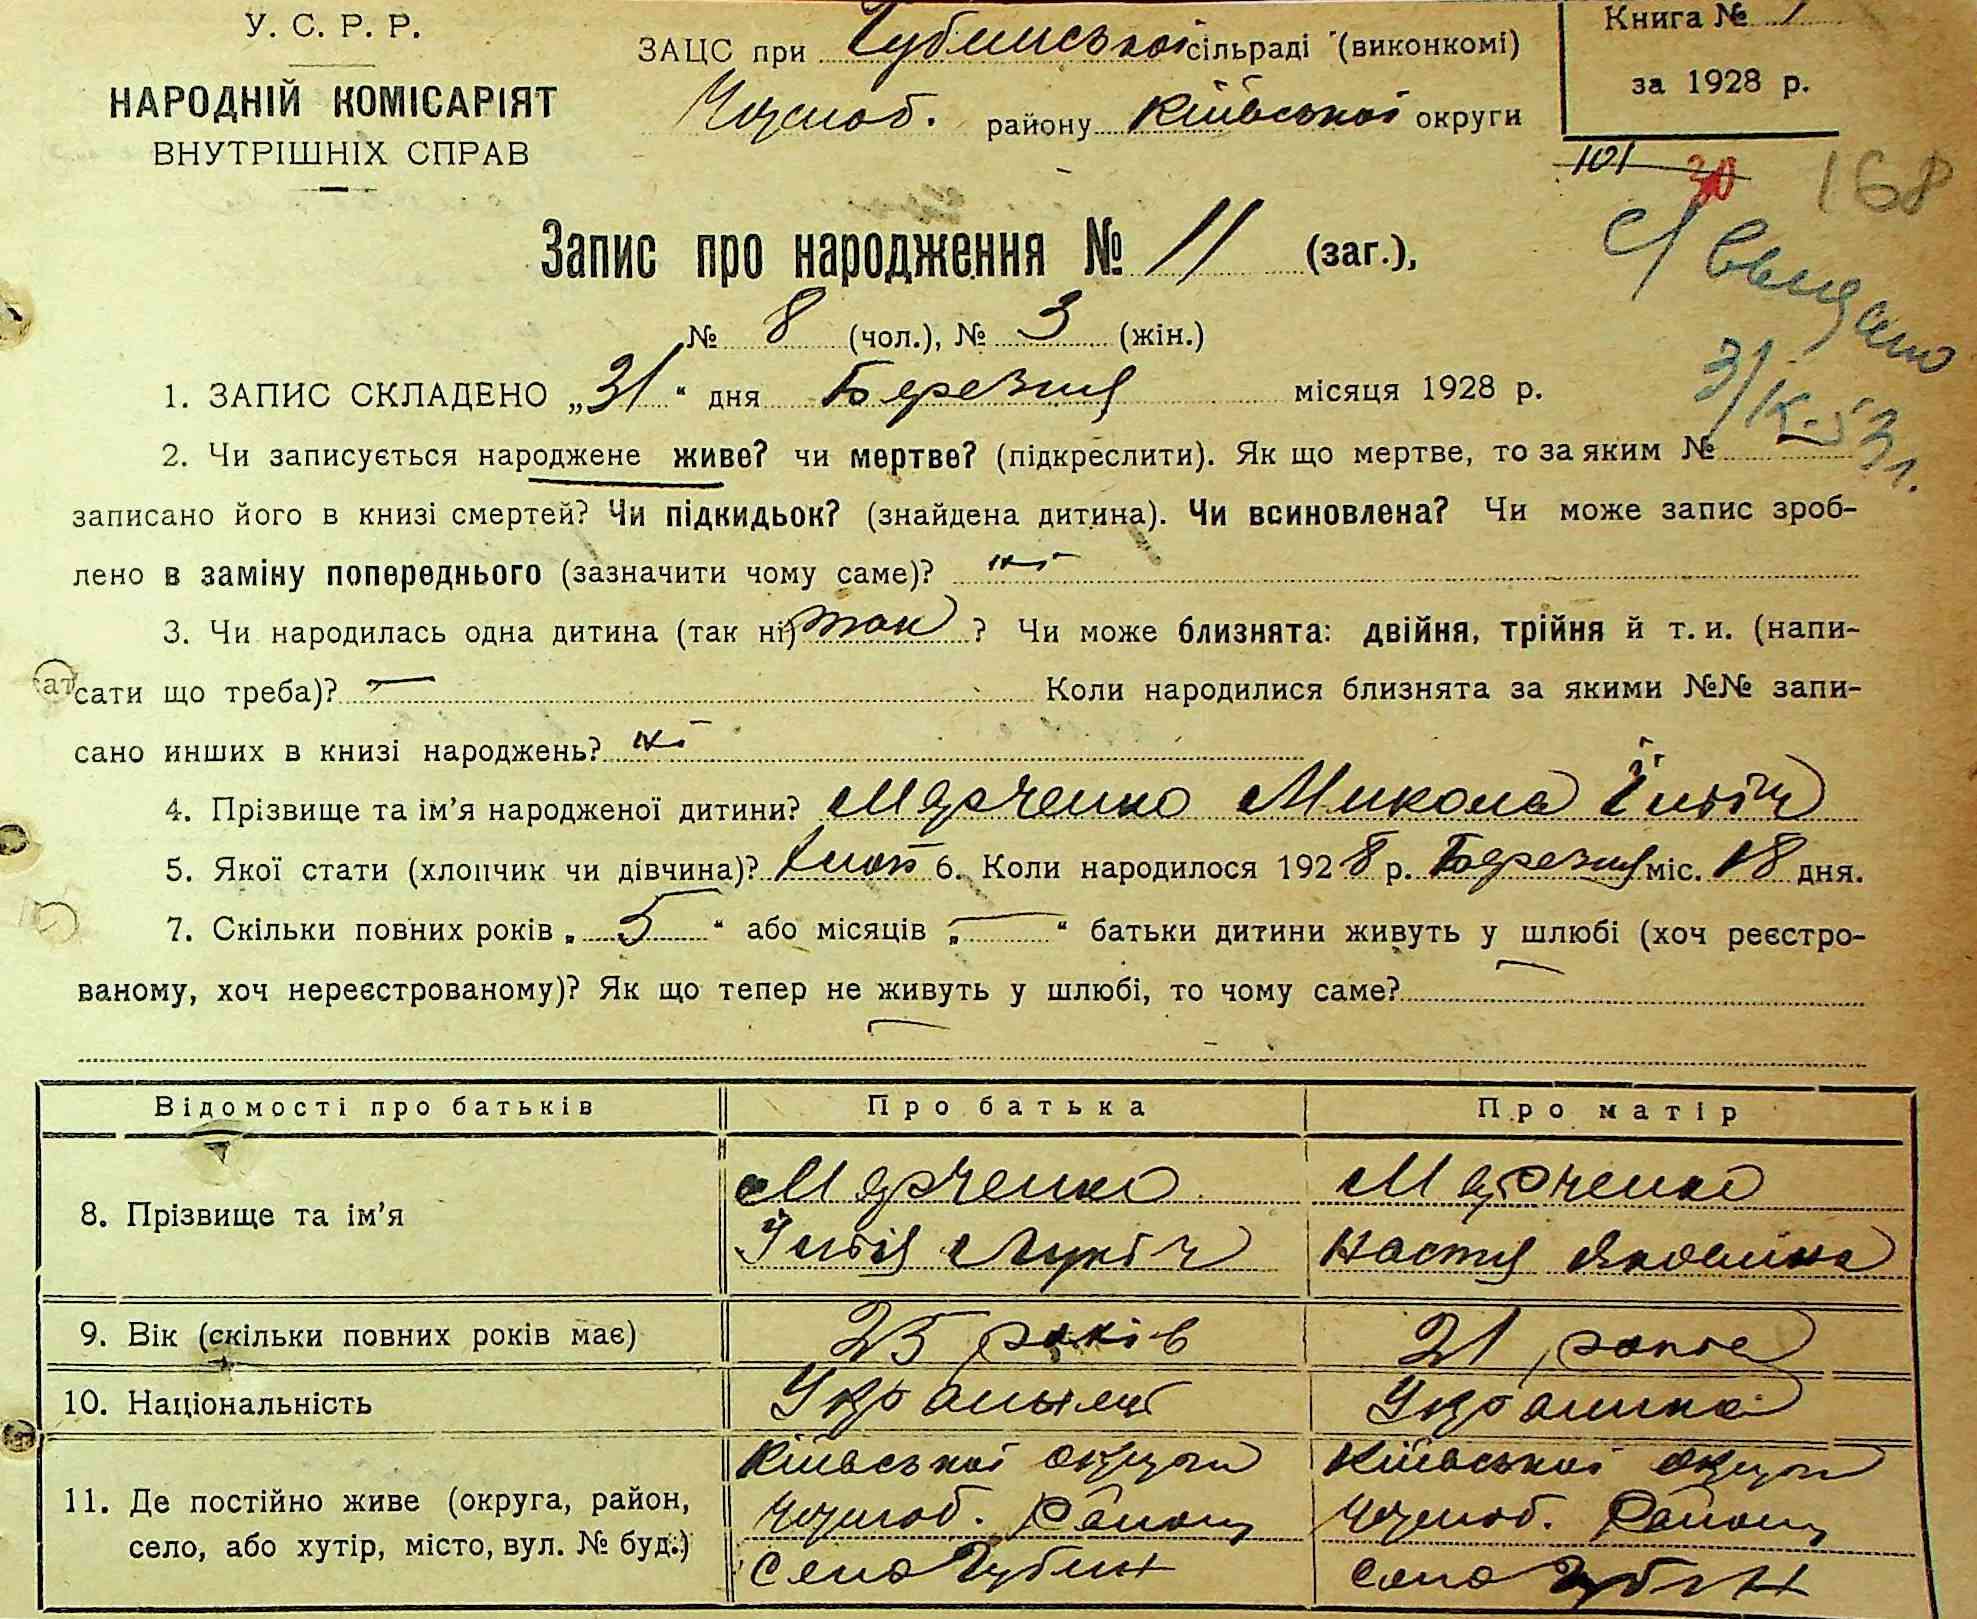 У. С. Р. Р.
НАРОДНІЙ КОМІСАРІЯТ
ВНУТРІШНІХ СПРАВ
ЗАЦС при Губинської сільраді (виконкомі)
Чорноб. району Київської округи
Книга № 1
за 1928 р.
101 30 168
Запис про народження № 11 (заг.),
№ 8 (чол.), № 3 (жін.)
1. ЗАПИС СКЛАДЕНО „31“ дня Березня місяця 1928 р.
2. Чи записується народжене живе? чи мертве? (підкреслити). Як що мертве, то за яким №
записано його в книзі смертей? Чи підкидьок? (знайдена дитина). Чи всиновлена? Чи може запис зроб-
лено в заміну попереднього (зазначити чому саме)? ні
3. Чи народилась одна дитина (так ні) так ? Чи може близнята: двійня, трійня й т. и. (напи-
сати що треба)? — Коли народилися близнята за якими №№ запи-
сано инших в книзі народжень? ні
4. Прізвище та ім’я народженої дитини? Марченко Микола Ілліч
5. Якої стати (хлопчик чи дівчина)? 6. Коли народилося 1928 р. Березня міс. 18 дня.
7. Скільки повних років „ 5 “ або місяців „ — “ батьки дитини живуть у шлюбі (хоч реєстро-
ваному, хоч нереєстрованому)? Як що тепер не живуть у шлюбі, то чому саме?
Відомості про батьків Про батька Про матір
8. Прізвище та ім’я Марченко Марченко
Ілія Лукіч Настя Яковлівна
9. Вік (скільки повних років має) 25 років 21 рока
10. Національність Українець Українка
11. Де постійно живе (округа, район, село, або хутір, місто, вул. № буд.) Київської округи Київської округи
Чорноб. Району Чорноб. Району
Село Губин Село Губин